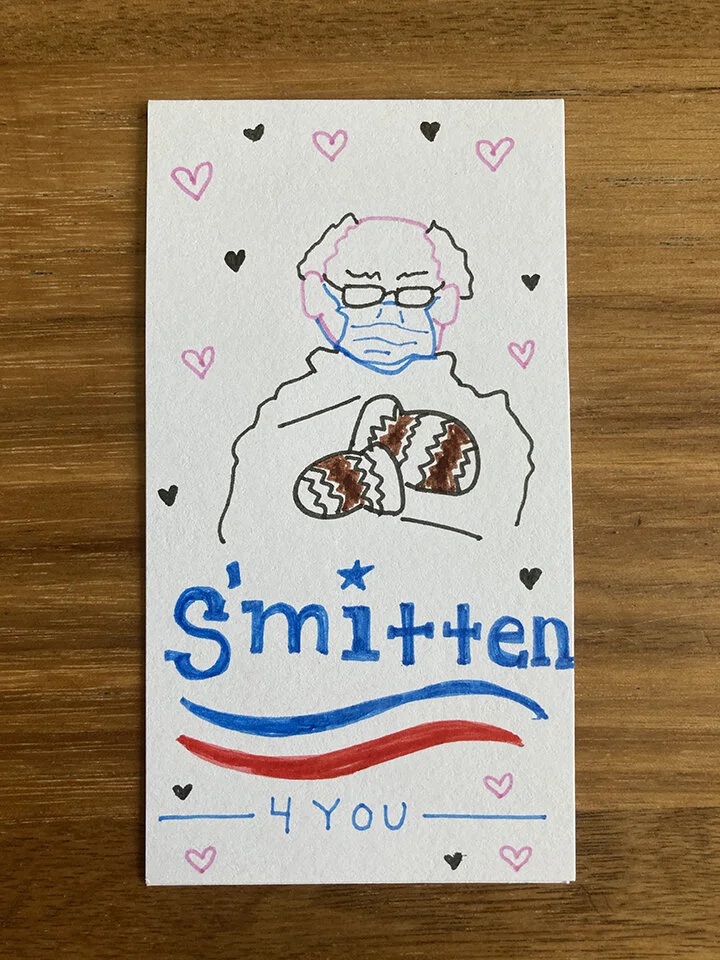 S'mitten
4 YOU